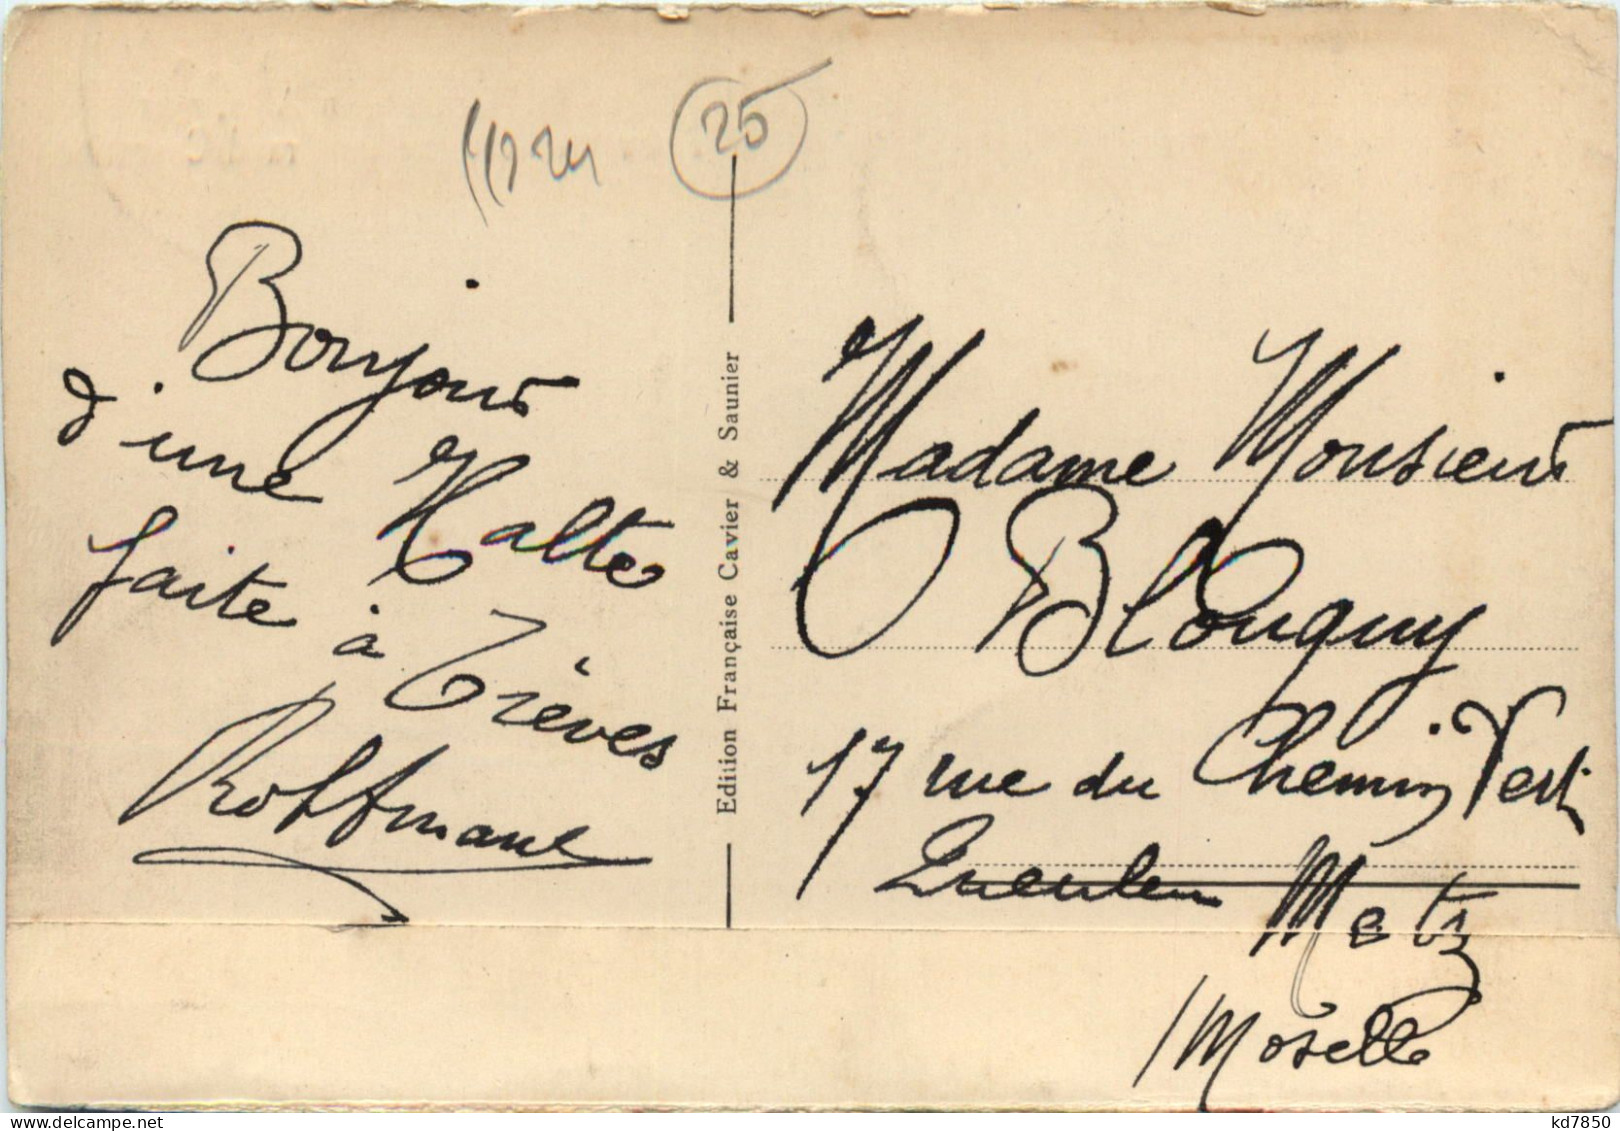 25
Bonjour
d'une Halte
faite à Trèves
Edition Française Cavier & Saunier
Madame Monsieur
17 rue du Chemin Vert
Queuleu Metz
Moselle
kd7850